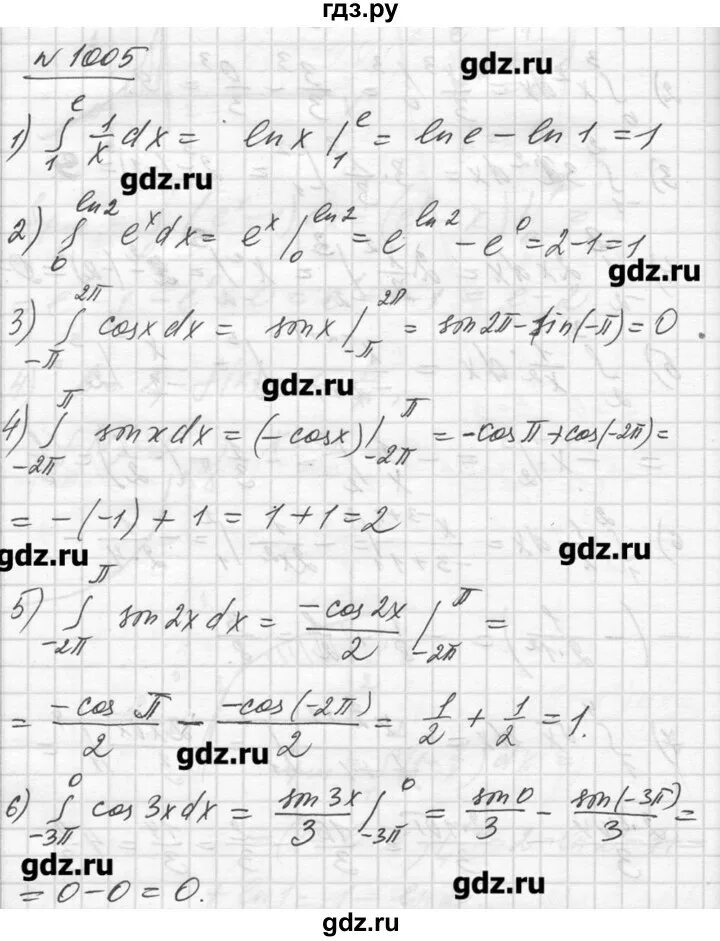 гдз.ру
№ 1005
gdz.ru
1) ∫₁ᵉ 1/x dx = ln x |₁ᵉ = ln e − ln 1 = 1
gdz.ru
2) ∫₀^{ln2} eˣdx = eˣ |₀^{ln2} = e^{ln2} − e⁰ = 2−1 = 1
gdz.ru
3) ∫_{−π}^{2π} cosx dx = sinx |_{−π}^{2π} = sin2π − sin(−π) = 0
gdz.ru
4) ∫_{−2π}^{π} sinx dx = (−cosx) |_{−2π}^{π} = −cosπ + cos(−2π) =
= −(−1) + 1 = 1+1 = 2
gdz.ru gdz.ru
5) ∫_{−2π}^{π} sin2x dx = −cos2x/2 |_{−2π}^{π} =
= −cos π/2 − −cos(−2π)/2 = 1/2 + 1/2 = 1.
gdz.ru
6) ∫_{−3π}^{0} cos3x dx = sin3x/3 |_{−3π}^{0} = sin0/3 − sin(−3π)/3 =
gdz.ru
= 0−0 = 0.
gdz.ru
gdz.ru